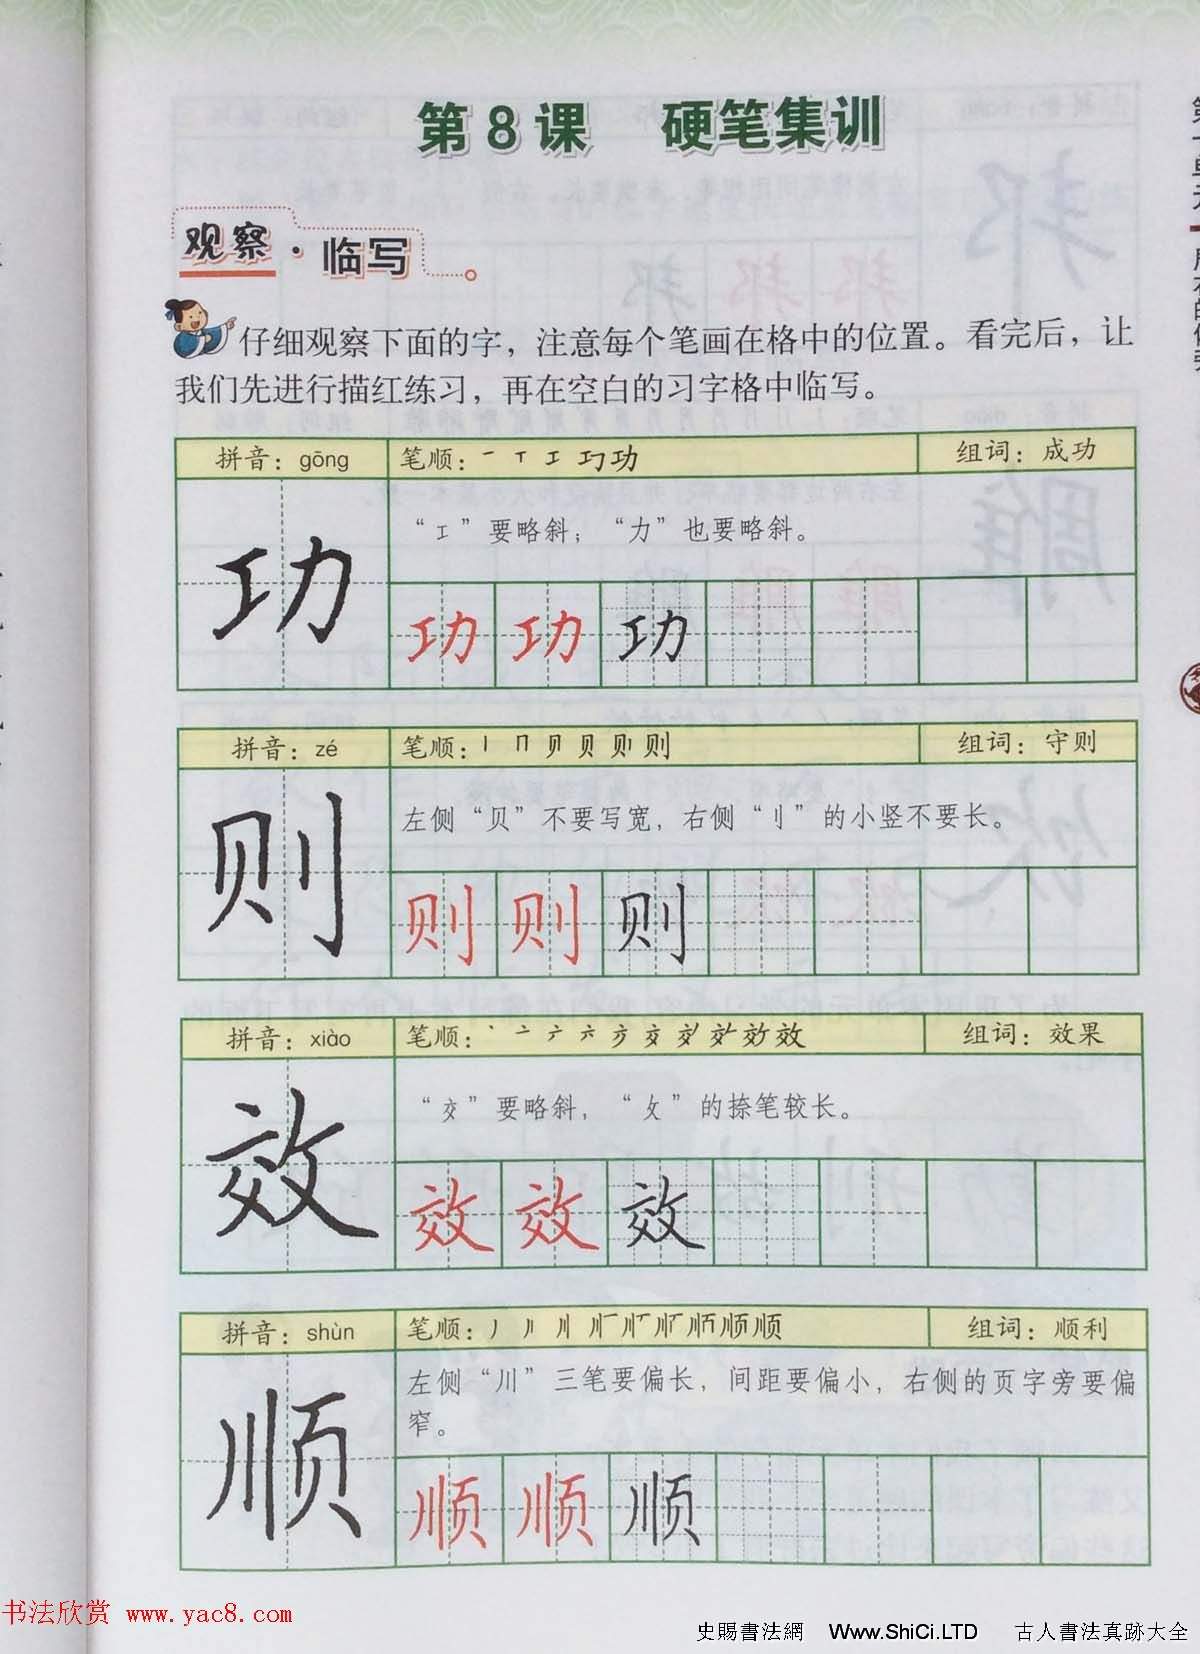 第8课 硬笔集训
观察·临写
仔细观察下面的字，注意每个笔画在格中的位置。看完后，让
我们先进行描红练习，再在空白的习字格中临写。
拼音：gōng 笔顺： 功 组词：成功
“工”要略斜；“力”也要略斜。
功 功 功 功
拼音：zé 笔顺： 则 组词：守则
左侧“贝”不要写宽，右侧“刂”的小竖不要长。
则 则 则 则
拼音：xiào 笔顺： 效 组词：效果
“交”要略斜，“攵”的捺笔较长。
效 效 效 效
拼音：shùn 笔顺： 顺 组词：顺利
左侧“川”三笔要偏长，间距要偏小，右侧的页字旁要偏
窄。
顺 顺 顺 顺
书法欣赏 www.yac8.com
史賜書法網 Www.ShiCi.LTD 古人書法真跡大全